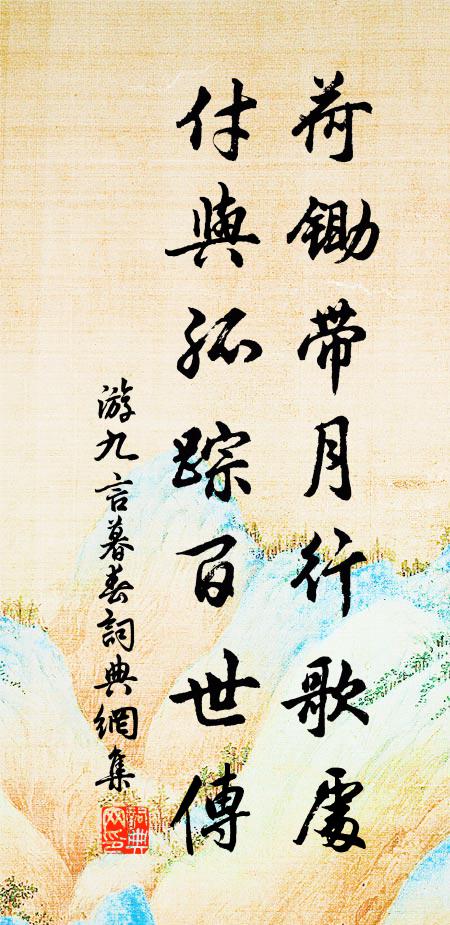 荷鋤带月行歌處
付與孤踪百世傳
游九言暮春詞典網集
詞典網印